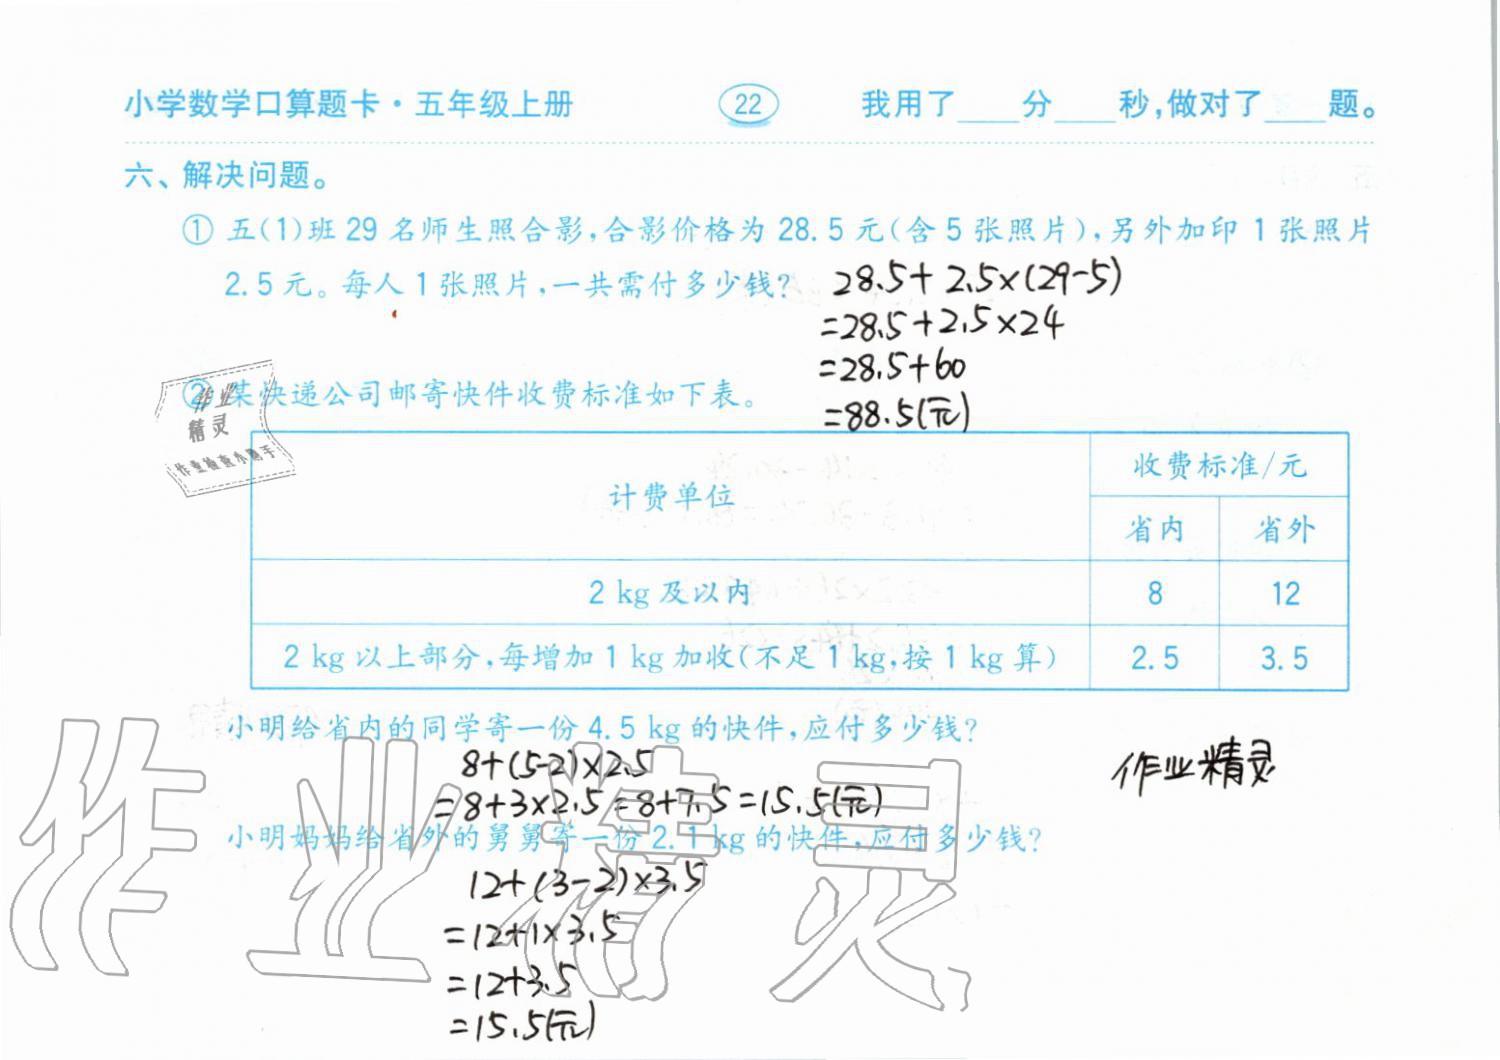 小学数学口算题卡·五年级上册 22 我用了____分____秒,做对了____题。
六、解决问题。
① 五(1)班 29 名师生照合影,合影价格为 28.5 元(含 5 张照片),另外加印 1 张照片
2.5 元。每人 1 张照片,一共需付多少钱?
28.5+2.5×(29-5)
=28.5+2.5×24
=28.5+60
=88.5(元)
② 某快递公司邮寄快件收费标准如下表。
作业
精灵
作业检查小助手
计费单位 收费标准/元
省内 省外
2 kg 及以内 8 12
2 kg 以上部分,每增加 1 kg 加收(不足 1 kg,按 1 kg 算) 2.5 3.5
小明给省内的同学寄一份 4.5 kg 的快件,应付多少钱?
8+(5-2)×2.5
=8+3×2.5=8+7.5=15.5(元)
作业精灵
小明妈妈给省外的舅舅寄一份 2.1 kg 的快件,应付多少钱?
12+(3-2)×3.5
=12+1×3.5
=12+3.5
=15.5(元)
作业精灵